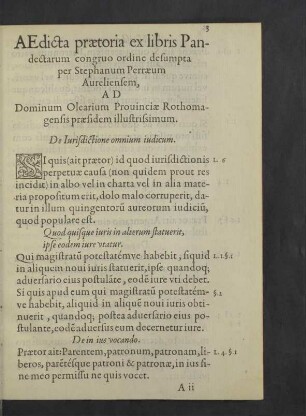 3
AEdicta prætoria ex libris Pan-
dectarum congruo ordine desumpta
per Stephanum Perræum
Aureliensem,
AD
Dominum Olearium Prouinciæ Rothoma-
gensis præsidem illustrissimum.
De Iurisdictione omnium iudicum.
SI quis (ait prætor) id quod iurisdictionis l. 6
perpetuæ causa (non quidem prout res
incidit) in albo vel in charta vel in alia mate-
ria propositum erit, dolo malo corruperit, da-
tur in illum quingentorũ aureorum iudiciũ,
quod populare est.
Quod quisque iuris in alterum statuerit,
ipse eodem iure vtatur.
Qui magistratũ potestatémve habebit, siquid l. 1. §. 1
in aliquem noui iuris statuerit, ipse quandoq;
aduersario eius postulãte, eodẽ iure vti debet.
Si quis apud eum qui magistratũ potestatém- §. 1
ve habebit, aliquid in aliquẽ noui iuris obti-
nuerit, quandoq; postea aduersario eius po-
stulante, eodẽ aduersus eum decernetur iure.
De in ius vocando.
Prætor ait: Parentem, patronum, patronam, li- l. 4. §. 1
beros, parẽtésque patroni & patronæ, in ius si-
ne meo permissu ne quis vocet.
A ii